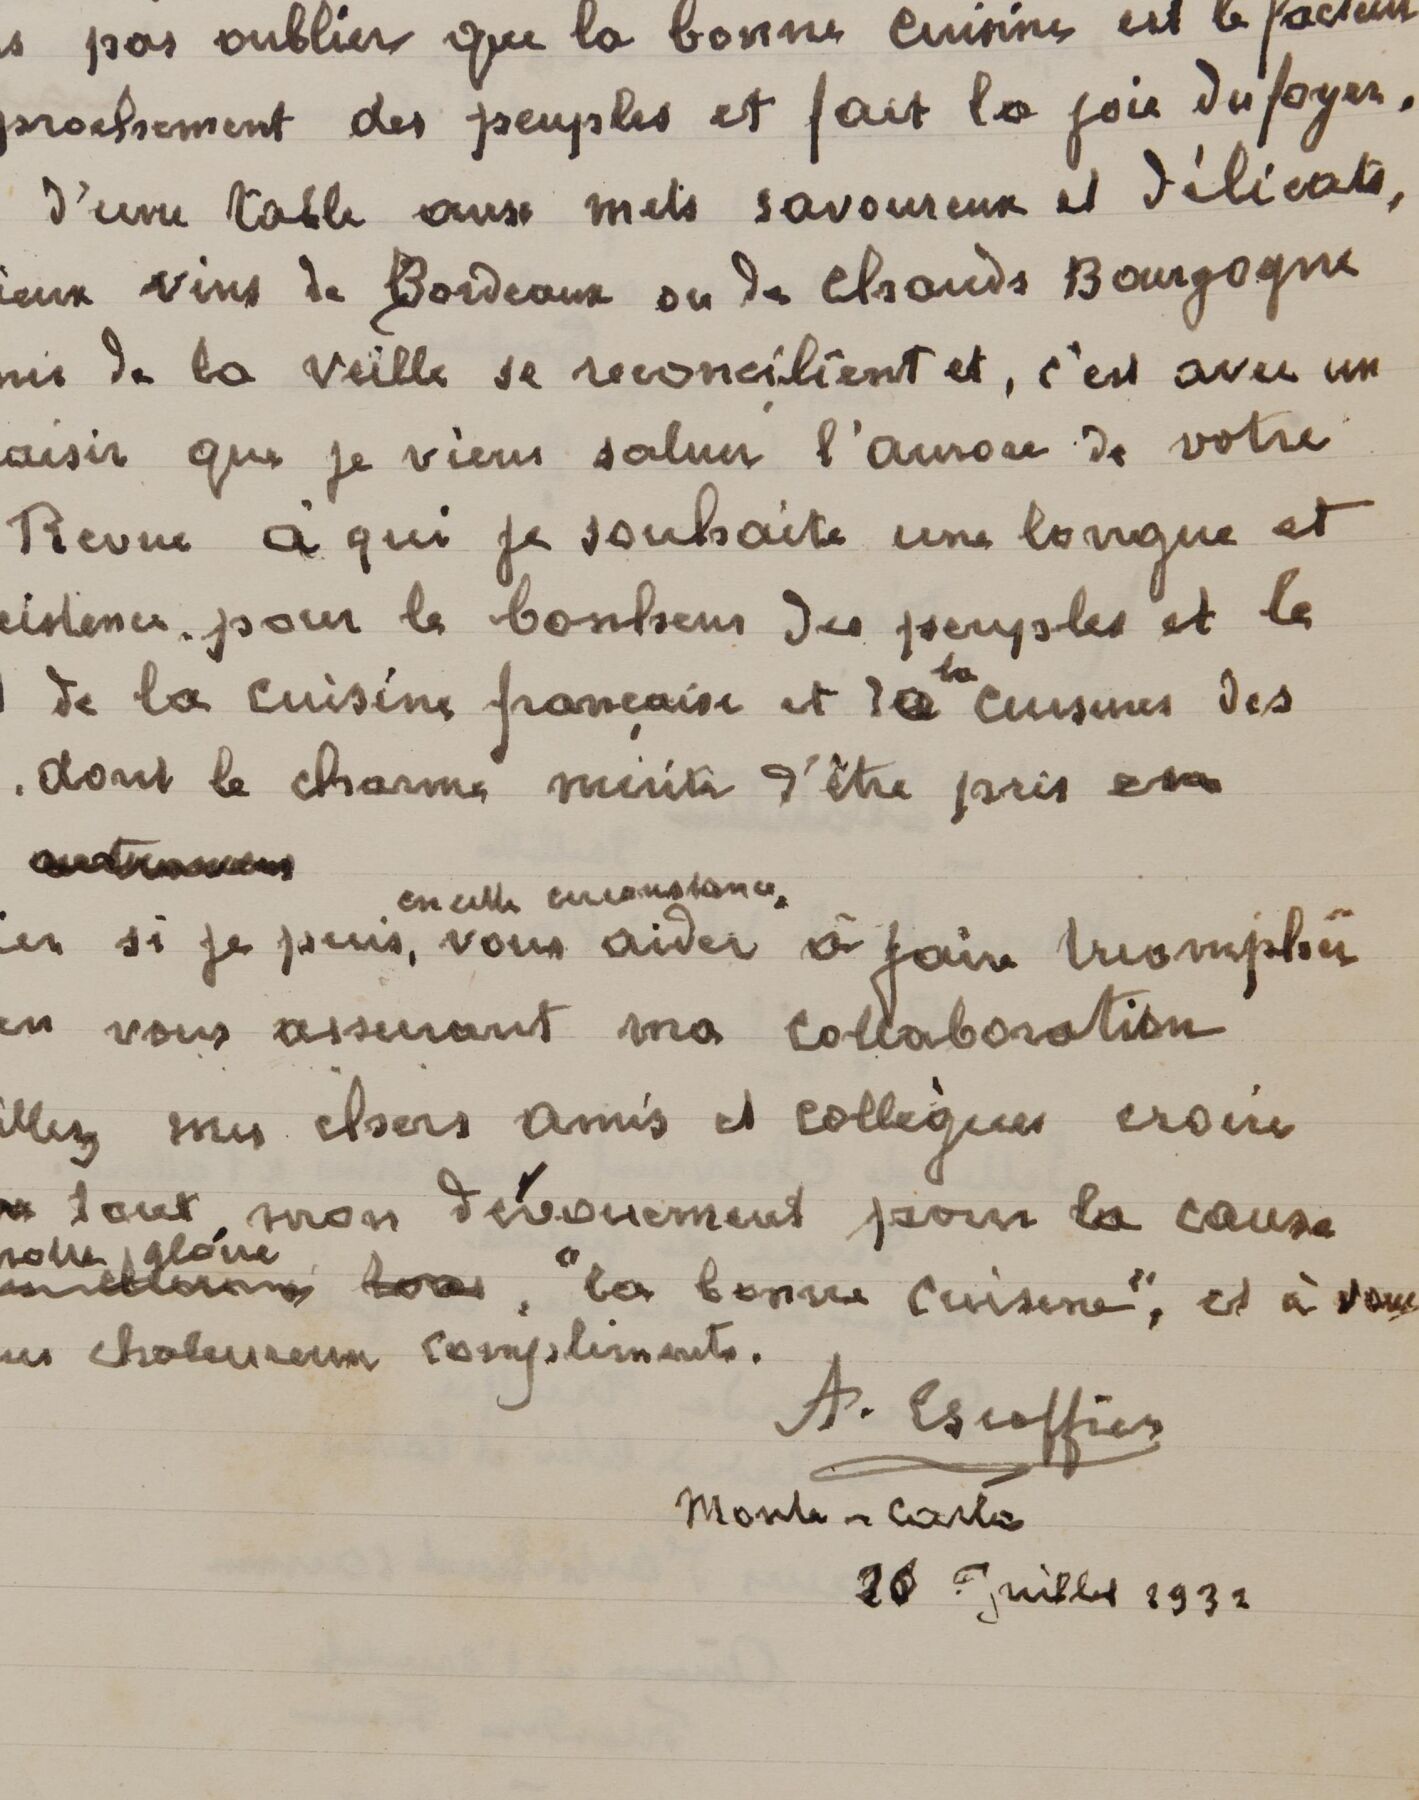 s pas oublier que la bonne cuisine est le facteur
prochement des peuples et fait la joie du foyer.
d'une table aux mets savoureux et délicats,
ieux vins de Bordeaux ou de chauds Bourgogne
mis de la veille se reconcilient et, c'est avec un
aisir que je viens saluer l'aurore de votre
Revue à qui je souhaite une longue et
existence. pour le bonheur des peuples et le
de la cuisine française et la cuisines des
. dont le charme mérite d'être pris en
en cette circonstance.
ier si je puis, vous aider à faire triompher
en vous assurant ma collaboration
illez mes chers amis et collègues croire
tout mon dévouement pour la cause
notre gloire
tous, "la bonne cuisine", et à vous
es chaleureux compliments.
A. Escoffier
Monte-Carlo
26 Juillet 1932